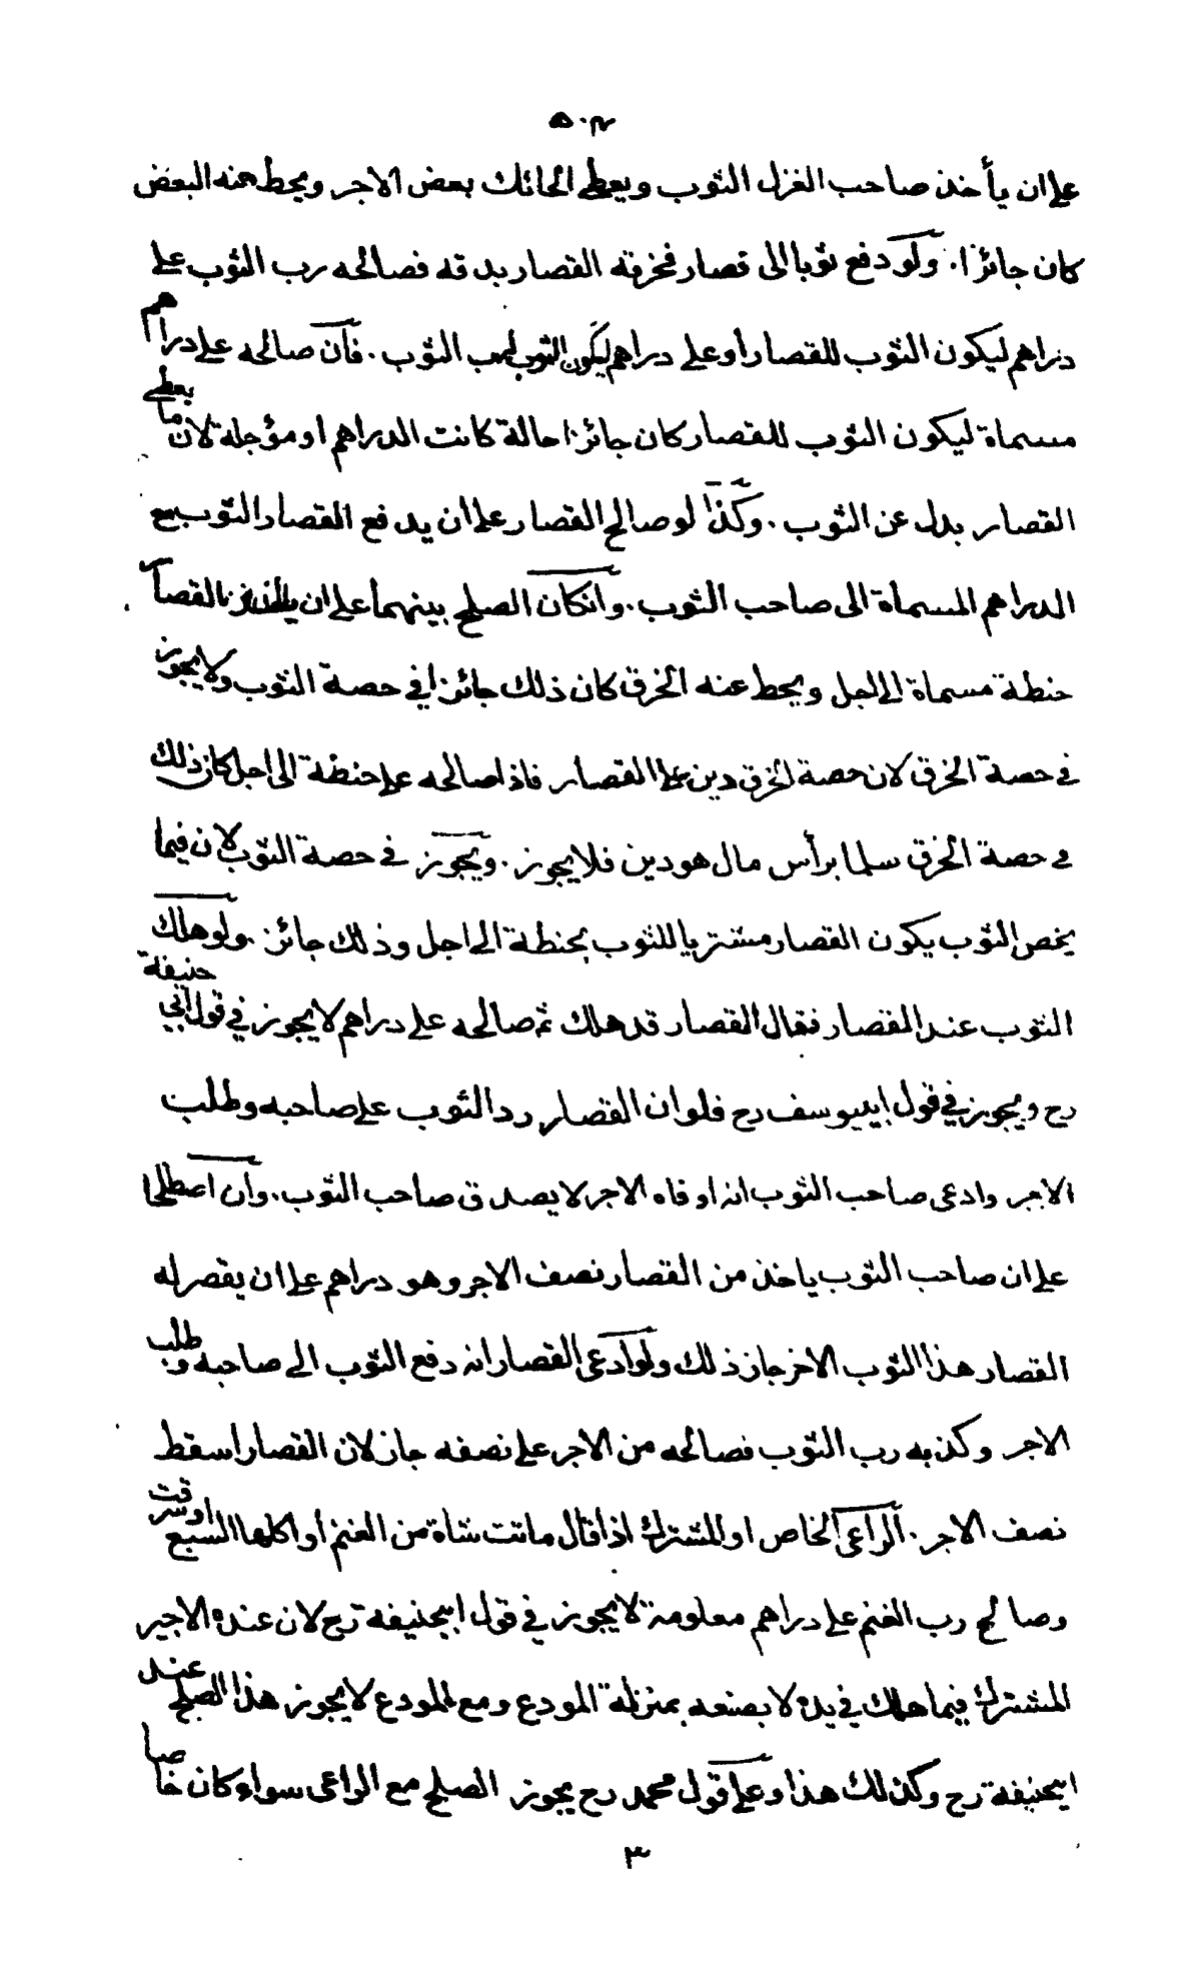 ٥٠٣
على ان يأخذ صاحب الغزل الثوب ويعطى الحائك بعض الاجر ويحط عنه البعض
كان جائزا. ولو دفع ثوبا الى قصار فخرقه القصار بدقه فصالحه رب الثوب على
دراهم ليكون الثوب للقصار او على دراهم ليكون الثوب لرب الثوب. فان صالحه على دراهم
مسماة ليكون الثوب للقصار كان جائزا حالة كانت الدراهم او مؤجلة لان ما يعطى
القصار بدل عن الثوب. وكذا لو صالح القصار على ان يدفع القصار الثوب مع
الدراهم المسماة الى صاحب الثوب. وانكان الصلح بينهما على ان القصار
حنطة مسماة الى اجل ويحط عنه الخرق كان ذلك جائزا في حصة الثوب ولا يجوز
في حصة الخرق لان حصة الخرق دين على القصار فاذا صالحه على حنطة الى اجل كان ذلك
في حصة الخرق سلما برأس مال هو دين فلا يجوز. ويجوز في حصة الثوب لان فيما
يخص الثوب يكون القصار مشتريا للثوب بحنطة الى اجل وذلك جائز. ولو هلك
الثوب عند القصار فقال القصار قد هلك ثم صالحه على دراهم لا يجوز في قول ابي حنيفة
رح ويجوز في قول ابي يوسف رح فلو ان القصار رد الثوب على صاحبه وطلب
الاجر وادعى صاحب الثوب انه اوفاه الاجر لا يصدق صاحب الثوب. وان اصطلحا
على ان صاحب الثوب ياخذ من القصار نصف الاجر وهو دراهم على ان يقصر له
القصار هذا الثوب الاخر جاز ذلك ولو ادعى القصار انه دفع الثوب الى صاحبه وطلب
الاجر وكذبه رب الثوب فصالحه من الاجر على نصفه جاز لان القصار اسقط
نصف الاجر. الراعى الخاص او المشترك اذا قال ماتت شاة من الغنم او اكلها السبع او سرقت
وصالح رب الغنم على دراهم معلومة لا يجوز في قول ابيحنيفة رح لان عنده الاجير
المشترك فيما هلك في يده لا بصنعه بمنزلة المودع ومع المودع لا يجوز هذا الصلح عند
ابيحنيفة رح وكذلك هذا وعلى قول محمد رح يجوز الصلح مع الراعى سواء كان خاصا
٣